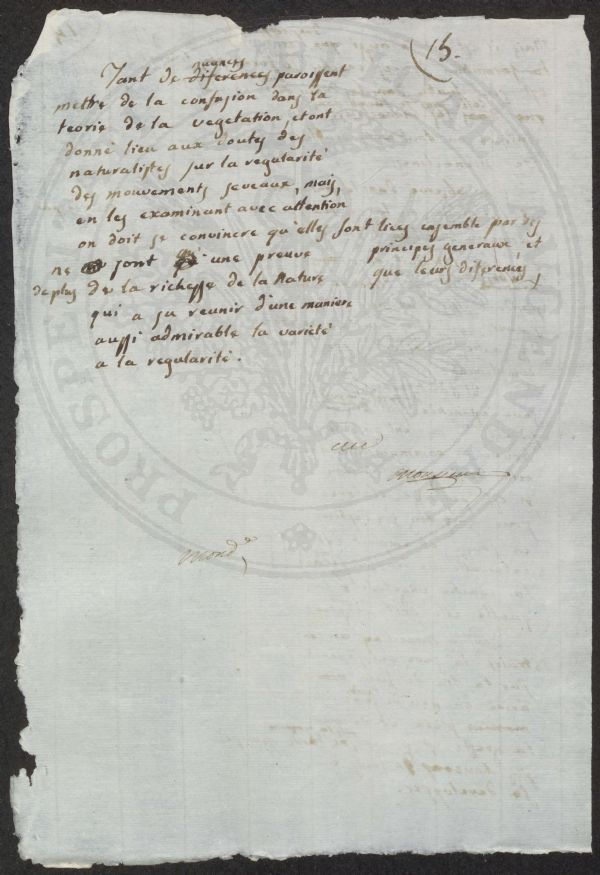 15.
nuances
Tant de diferences paroissent
mettre de la confusion dans la
teorie de la vegetation, et ont
donné lieu aux doutes des
naturalistes sur la regularité
des mouvements seveaux, mais,
en les examinant avec attention
on doit se convincre qu'elles sont liees ensemble par des
principes generaux, et
que leurs diferences,
ne sont qu'une preuve
de plus de la richesse de la Nature
qui a su reunir d'une maniere
aussi admirable la varieté
a la regularité.
Monsieur